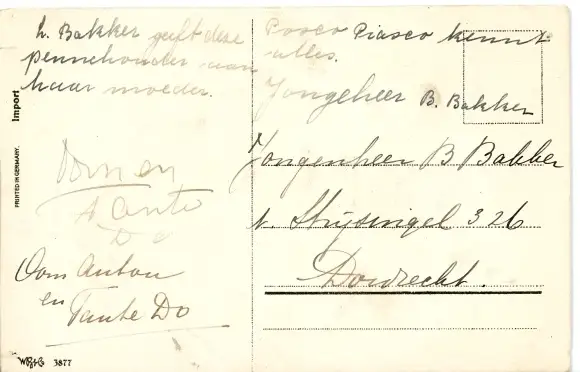 L. Bakker geeft deze
pennehouder aan
haar moeder.
Import
PRINTED IN GERMANY.
Oom en
Tante
Do
Oom Anton
en
Tante Do
3877
Posco Piasco kennt
alles.
Jongeheer B. Bakker
Jongenheer B Bakker
Singel 326
Dordrecht.